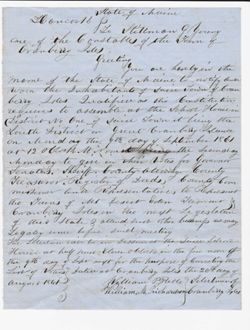 State of Maine
Hancock ss
To Stillman G Young
one of the Constables of the Town of
Cranberry Isles
Greeting
You are hereby in the
name of the State of Maine to notify and
warn the Inhabitants of said Town of Cran-
berry Isles Qualified as the Constitution
requires to assemble at the School House
District No One of said Town it being the
South District on Great Cranberry Island
on Monday the 9th of September
at 12 O'Clock it being the second
Monday to give in their Votes for Governor
Senators, Sheriff County Attorney County
Treasurer Register of Deeds County Com-
missioner and Representatives to Represent
the Towns of Mt Desert Eden Tremont &
Cranberry Isles in the next Legislature
of the State
Legacy since before such meeting
The Selectmen
House at
of the 9th day of Sept next for the purpose of Correcting the
List of Voters Dated at Cranberry Isles the day of
August
William P Selectmen of
William Richardson Cranberry Isles